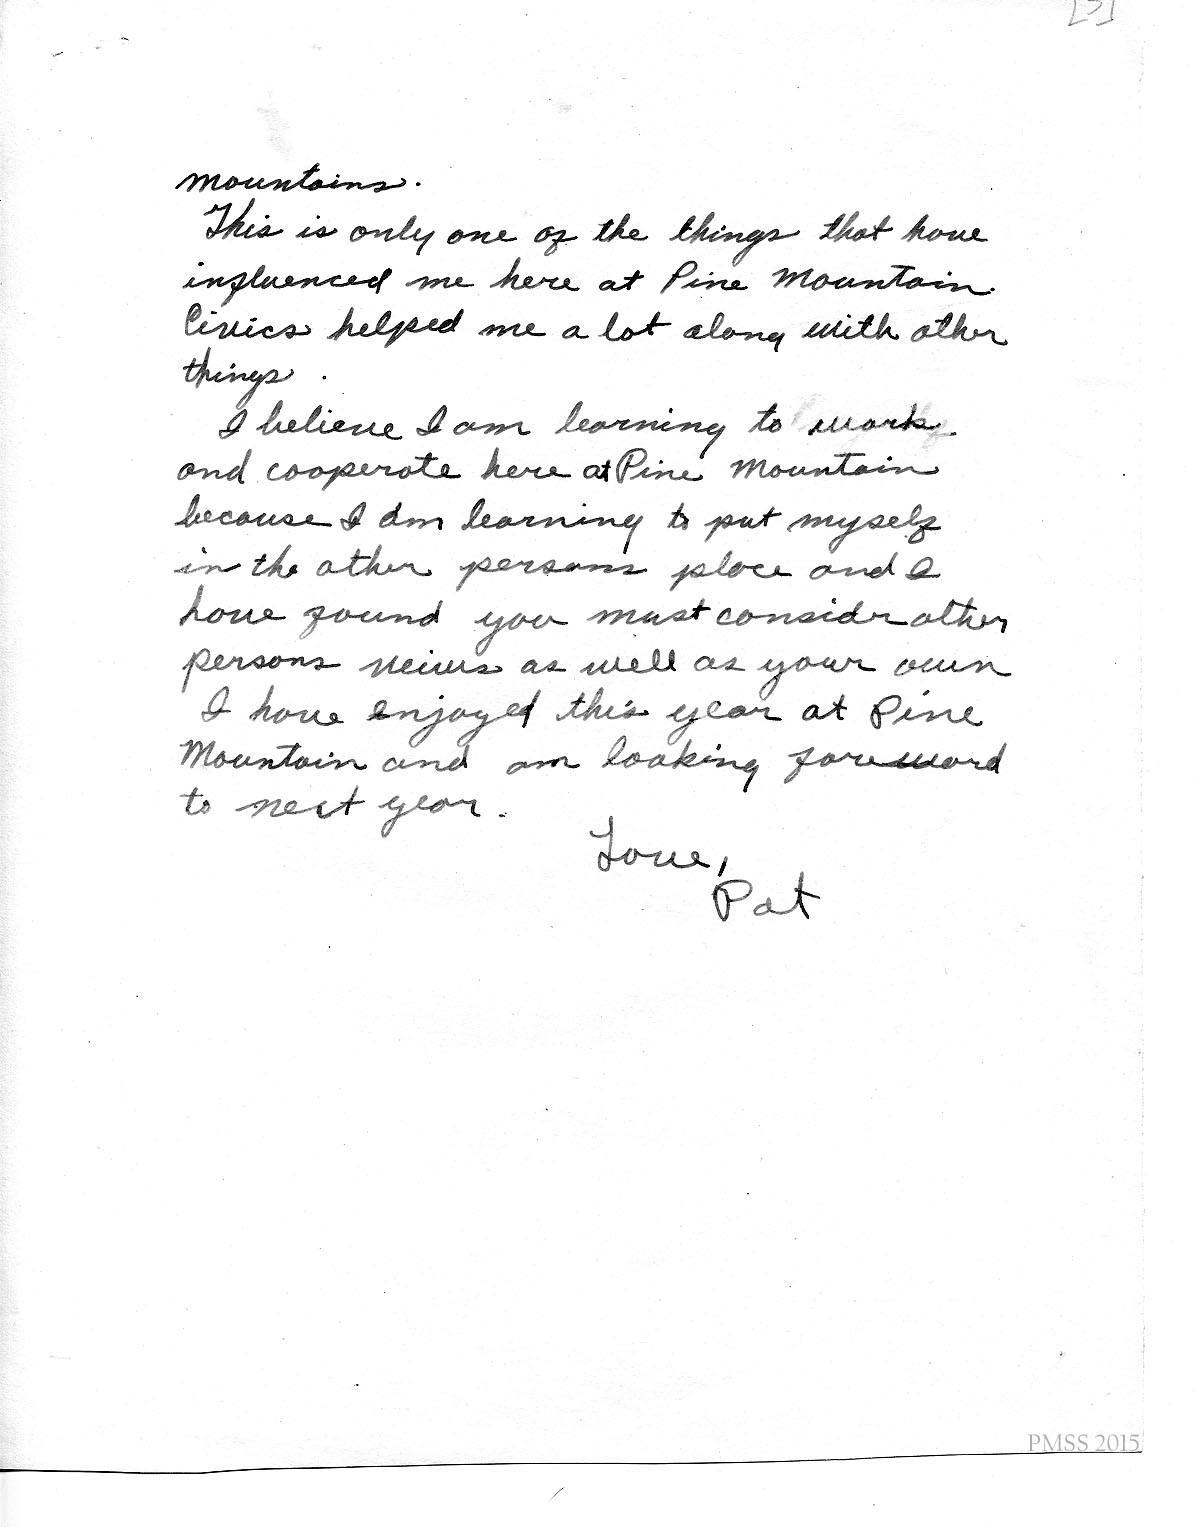 [3]
mountains.
This is only one of the things that have
influenced me here at Pine Mountain.
Civics helped me a lot along with other
things.
I believe I am learning to work
and cooperate here at Pine Mountain
because I am learning to put myself
in the other persons place and I
have found you must consider other
persons veiws as well as your own
I have enjoyed this year at Pine
Mountain and am looking foreword
to next year.
Love,
Pat
PMSS 2015